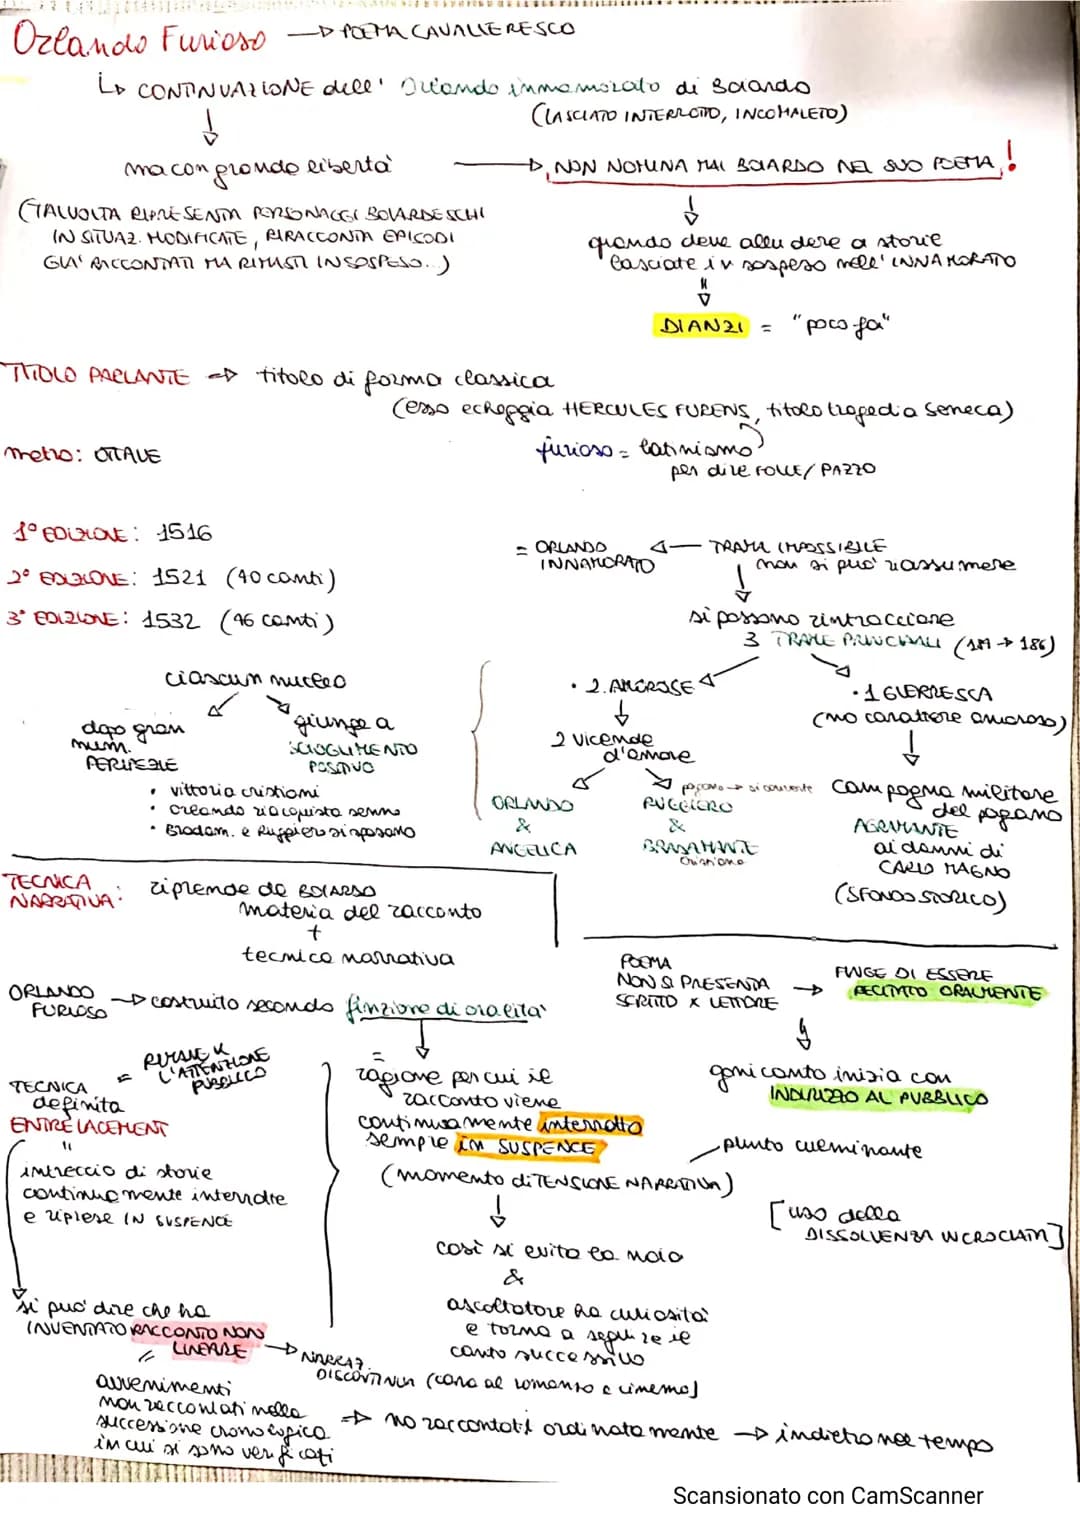 Orlando Furioso → POEMA CAVALLERESCO
↳ CONTINUAZIONE dell' Orlando innamorato di Boiardo
(LASCIATO INTERROTTO, INCOMPLETO)
ma con grande libertà → NON NOMINA MAI BOIARDO NEL SUO POEMA !
(TALVOLTA RIPRESENTA PERSONAGGI BOIARDESCHI
IN SITUAZ. MODIFICATE, RIRACCONTA EPISODI
GIA' RACCONTATI MA RIMASTI IN SOSPESO...)
quando deve alludere a storie
lasciate in sospeso nell'INNAMORATO
DIANZI = "poco fa"
TITOLO PARLANTE → titolo di forma classica
(esso echeggia HERCULES FURENS, titolo tragedia Seneca)
metro: OTTAVE
furioso = latinismo
per dire FOLLE/PAZZO
1° EDIZIONE: 1516
2° EDIZIONE: 1521 (40 canti)
3° EDIZIONE: 1532 (46 canti)
= ORLANDO INNAMORATO ← TRAMA IMPOSSIBILE
non si può riassumere
si possono rintracciare
3 TRAME PRINCIPALI (181 → 186)
ciascun nucleo
dopo gran
num.
PERIPEZIE
giunge a
SCIOGLIMENTO
POSITIVO
• vittoria cristiani
• Orlando riacquista senno
• Bradam. e Ruggiero si sposano
• 2. AMOROSE
2 vicende
d'amore
ORLANDO
&
ANGELICA
pagano → si converte
RUGGIERO
&
BRADAMANTE
cristiana
• 1 GUERRESCA
(no carattere amoroso)
campagna militare
del pagano
AGRAMANTE
ai danni di
CARLO MAGNO
(SFONDO STORICO)
TECNICA
NARRATIVA:
riprende da BOIARDO
materia del racconto
+
tecnica narrativa
ORLANDO
FURIOSO → costruito secondo finzione di oralità
POEMA
NON SI PRESENTA
SCRITTO X LETTORE
→ FINGE DI ESSERE
RECITATO ORALMENTE
ogni canto inizia con
INDIRIZZO AL PUBBLICO
=
ragione per cui il
racconto viene
continuamente interrotto
sempre in SUSPENCE
(momento di TENSIONE NARRATIVA)
punto culminante
[uso della
DISSOLVENZA INCROCIATA]
così si evita la noia
&
ascoltatore ha curiosità
e torna a seguire il
canto successivo
TECNICA
definita
ENTRELACEMENT
=
L'ATTENZIONE
PUBBLICO
"
intreccio di storie
continuamente interrotte
e riprese IN SUSPENCE
si può dire che ha
INVENTATO RACCONTO NON
LINEARE
→ NARRAZ.
DISCONTINUA (cara al romanzo e cinema)
=
avvenimenti
non raccontati nella
successione cronologica
in cui si sono verificati
⇒ no raccontati ordinatamente → indietro nel tempo
Scansionato con CamScanner